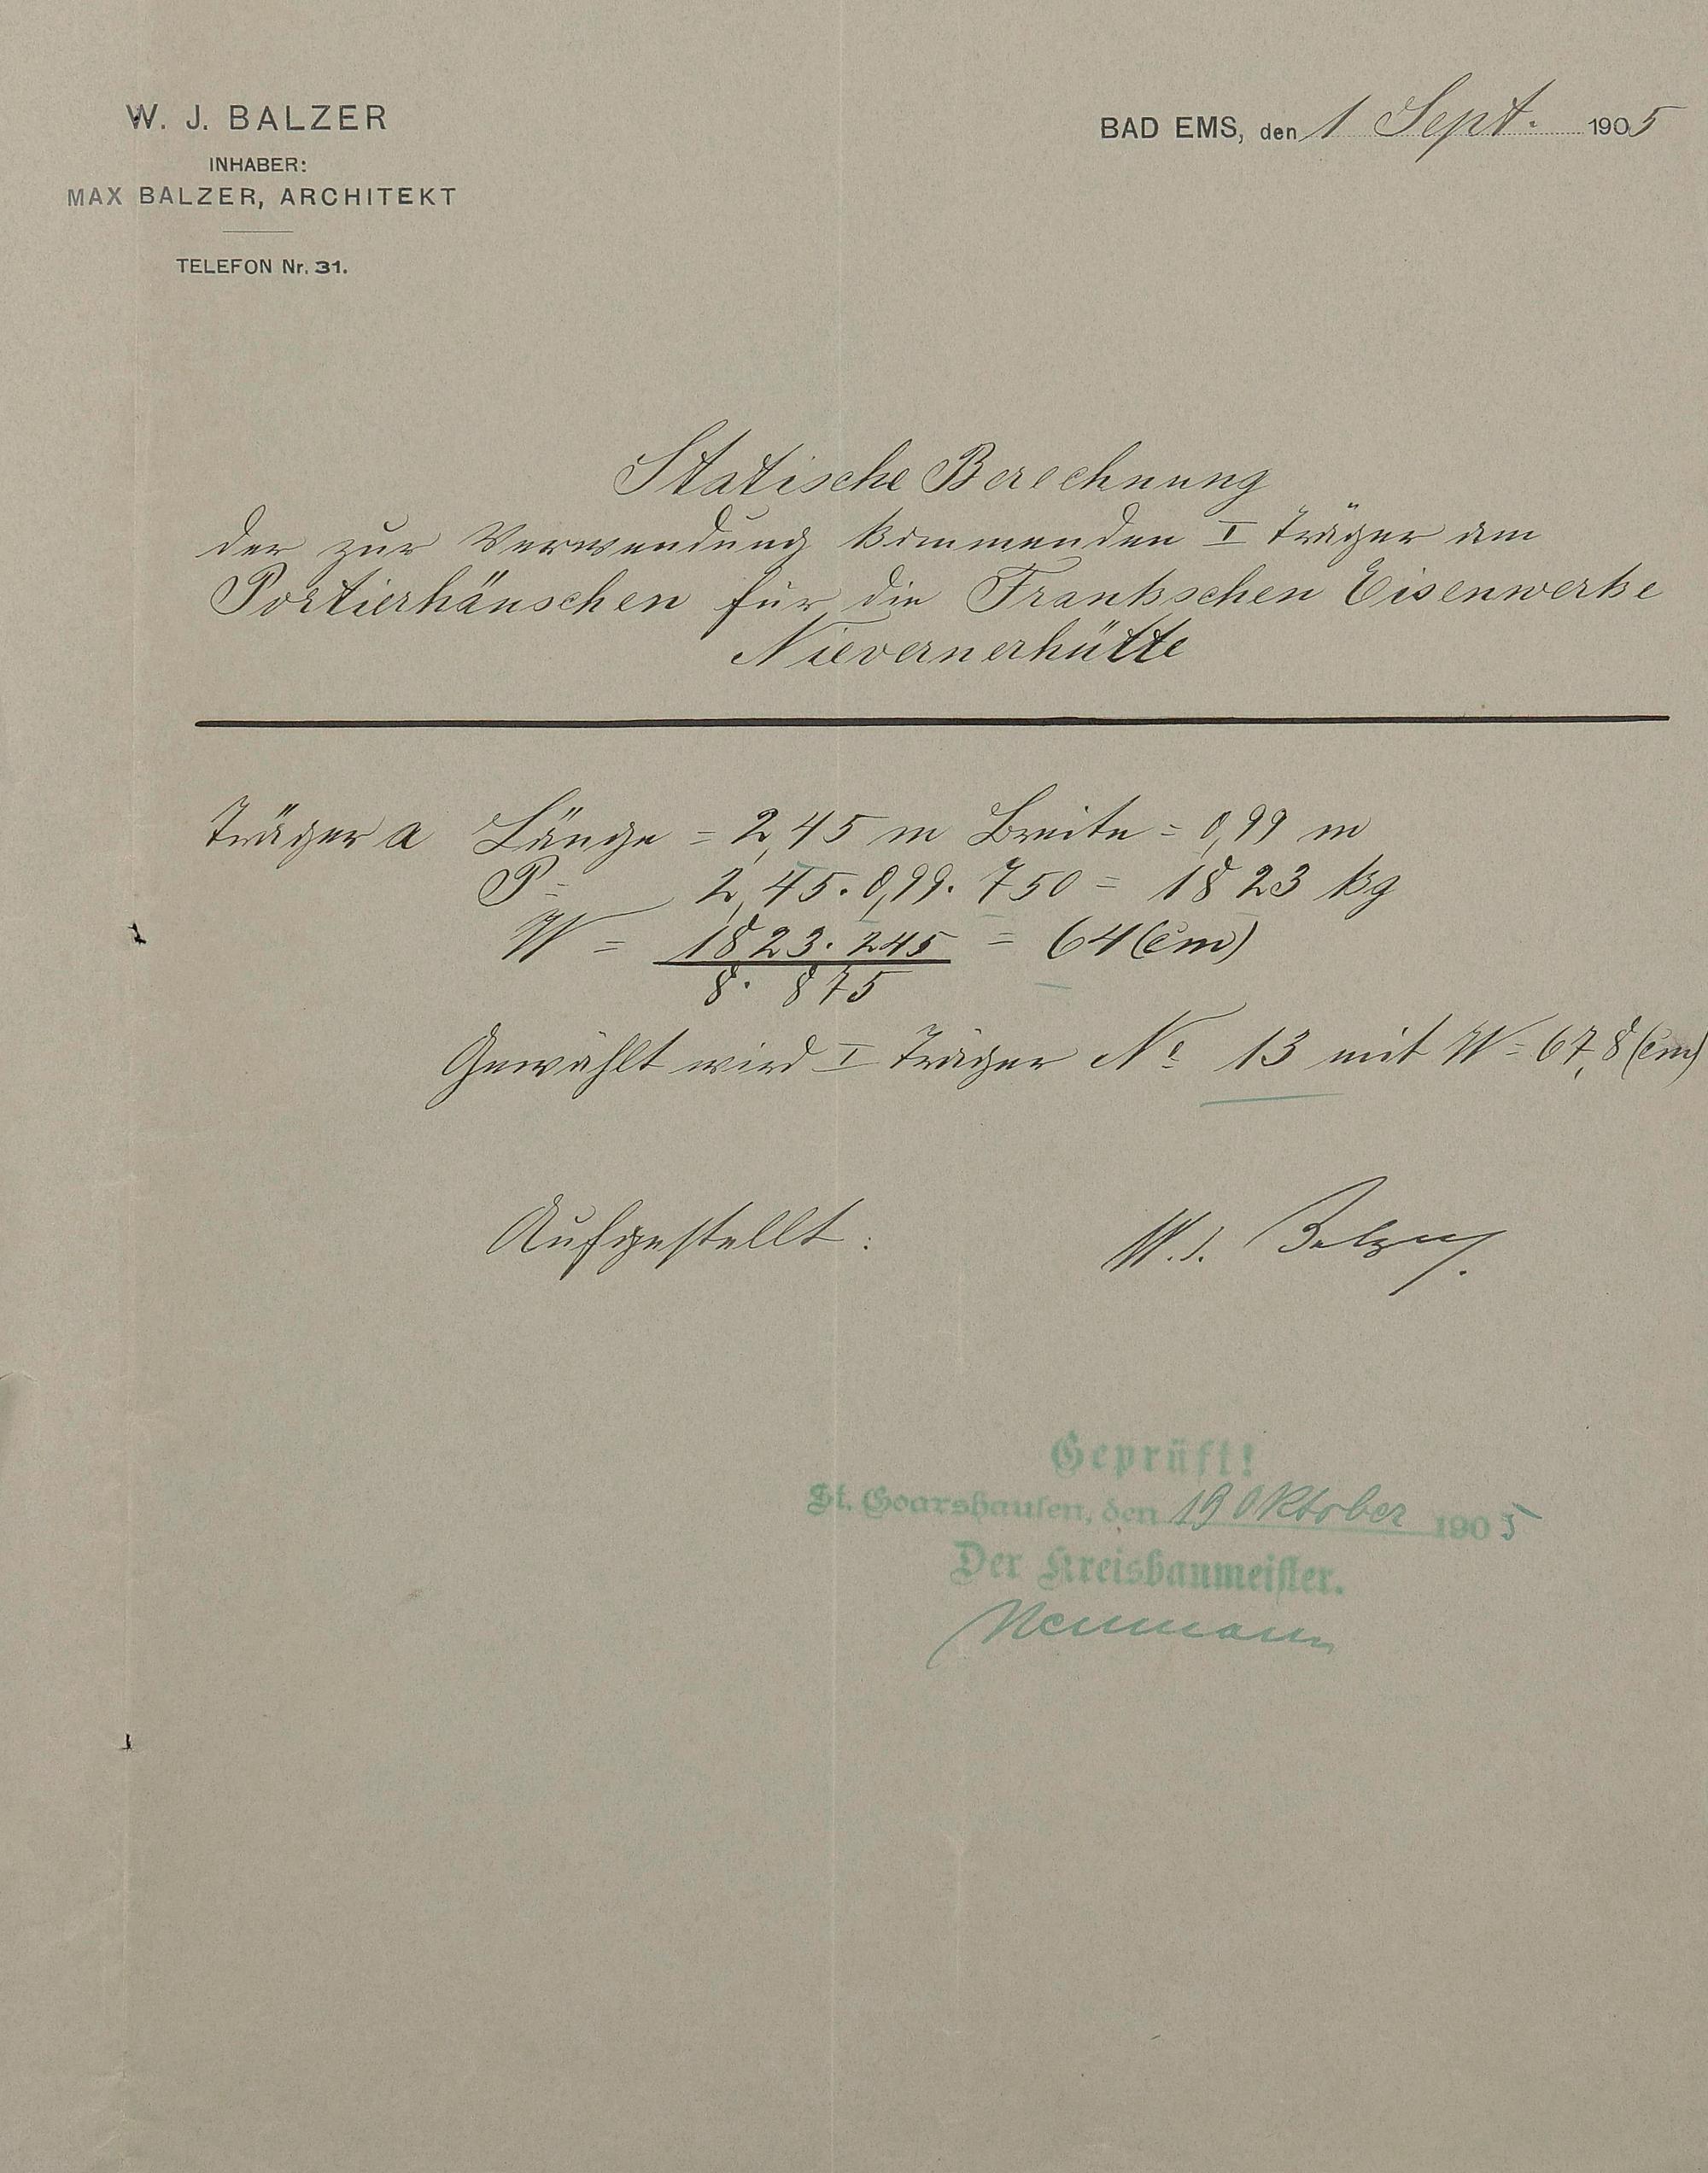 W. J. BALZER
INHABER:
MAX BALZER, ARCHITEKT
TELEFON Nr. 31.
BAD EMS, den 1 Sept. 1905
Statische Berechnung
der zur Verwendung kommenden I Träger am
Portierhäuschen für die Frankschen Eisenwerke
Nievernerhütte
Träger a Länge = 2,45 m Breite = 0,99 m
P = 2,45 . 0,99 . 750 = 1823 kg
W = 1823 . 245 = 64 (cm)
8 . 875
Gewählt wird I Träger No 13 mit W = 67,8 (cm)
Aufgestellt : W. J. Balzer.
Geprüft!
St. Goarshausen, den 19 Oktober 1905
Der Kreisbaumeister.
Neumann